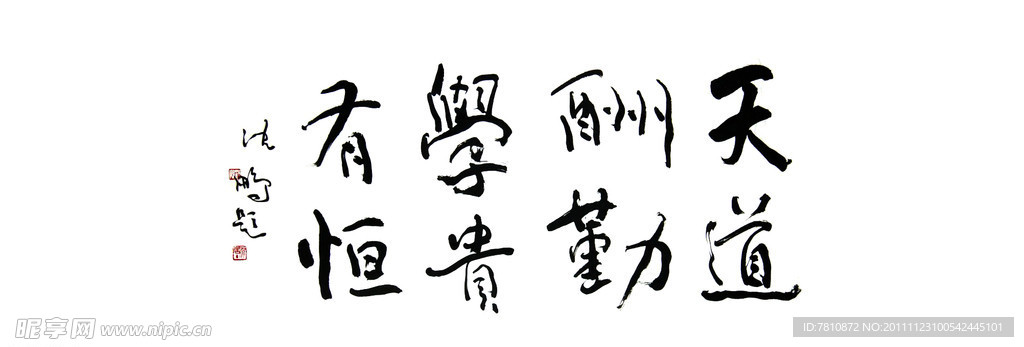 天道
酬勤
學貴
有恒
沈鹏题
昵享网 www.nipic.cn
ID:7810872 NO:20111123100542445101